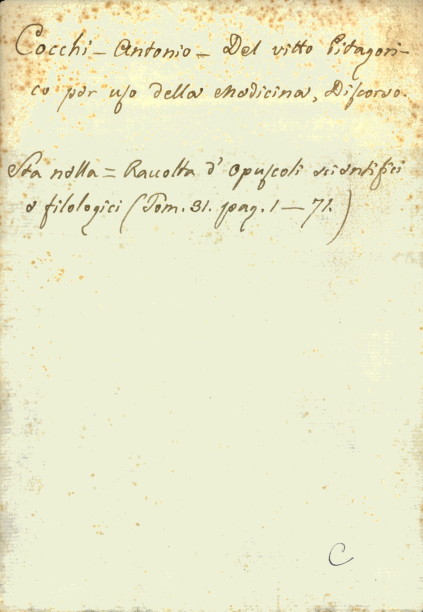 Cocchi - Antonio - Del vitto Pitagori-
co per uso della Medicina, Discorso.
Sta nella = Raccolta d' Opuscoli scientifici
e filologici (Tom. 31. pag. 1 - 71.)
C